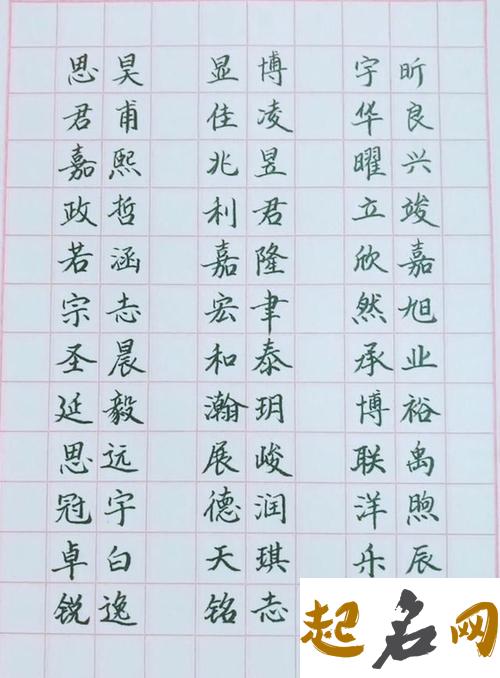 思昊 显博 宇昕
君甫 佳凌 华良
嘉熙 兆昱 曜兴
政哲 利君 立竣
若涵 嘉隆 欣嘉
宗志 宏聿 然旭
圣晨 和泰 承业
延毅 瀚玥 博裕
思远 展峻 联禹
冠宇 德润 洋煦
卓白 天琪 乐辰
锐逸 铭志
起名网